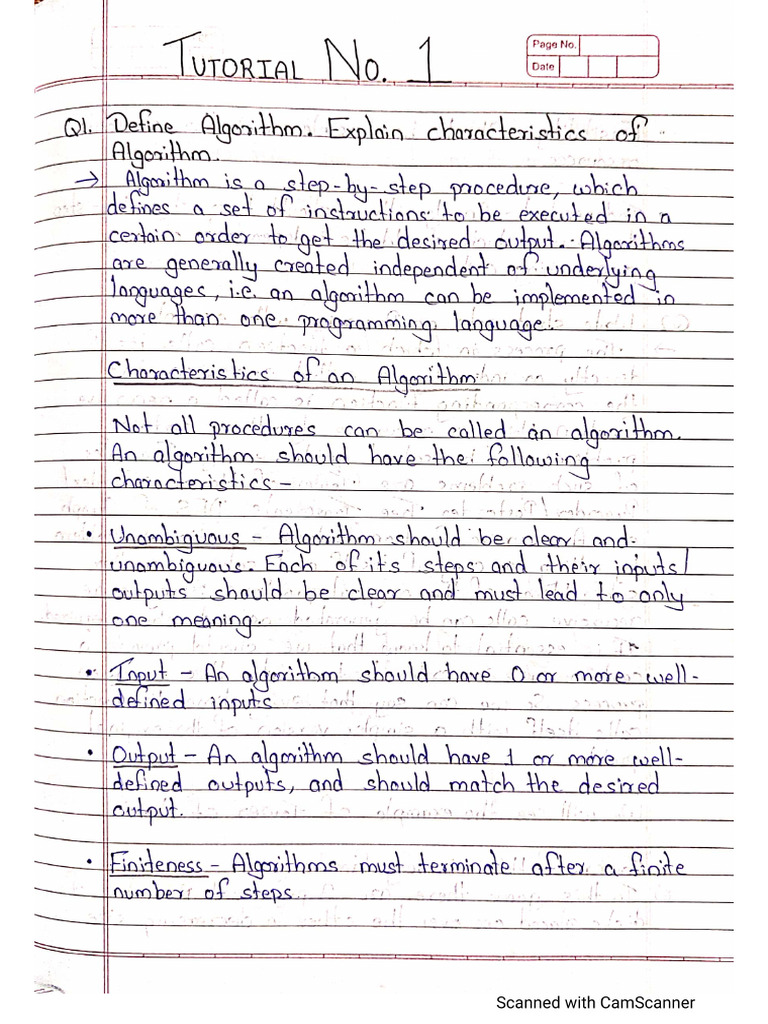 TUTORIAL No. 1
Page No.
Date
Q1. Define Algorithm. Explain characteristics of
Algorithm.
→ Algorithm is a step-by-step procedure, which
defines a set of instructions to be executed in a
certain order to get the desired output. Algorithms
are generally created independent of underlying
languages, i.e. an algorithm can be implemented in
more than one programming language.
Characteristics of an Algorithm
Not all procedures can be called an algorithm.
An algorithm should have the following
characteristics -
• Unambiguous - Algorithm should be clear and
unambiguous. Each of its steps and their inputs/
outputs should be clear and must lead to only
one meaning.
• Input - An algorithm should have 0 or more well-
defined inputs
• Output - An algorithm should have 1 or more well-
defined outputs, and should match the desired
output.
• Finiteness - Algorithms must terminate after a finite
number of steps
Scanned with CamScanner